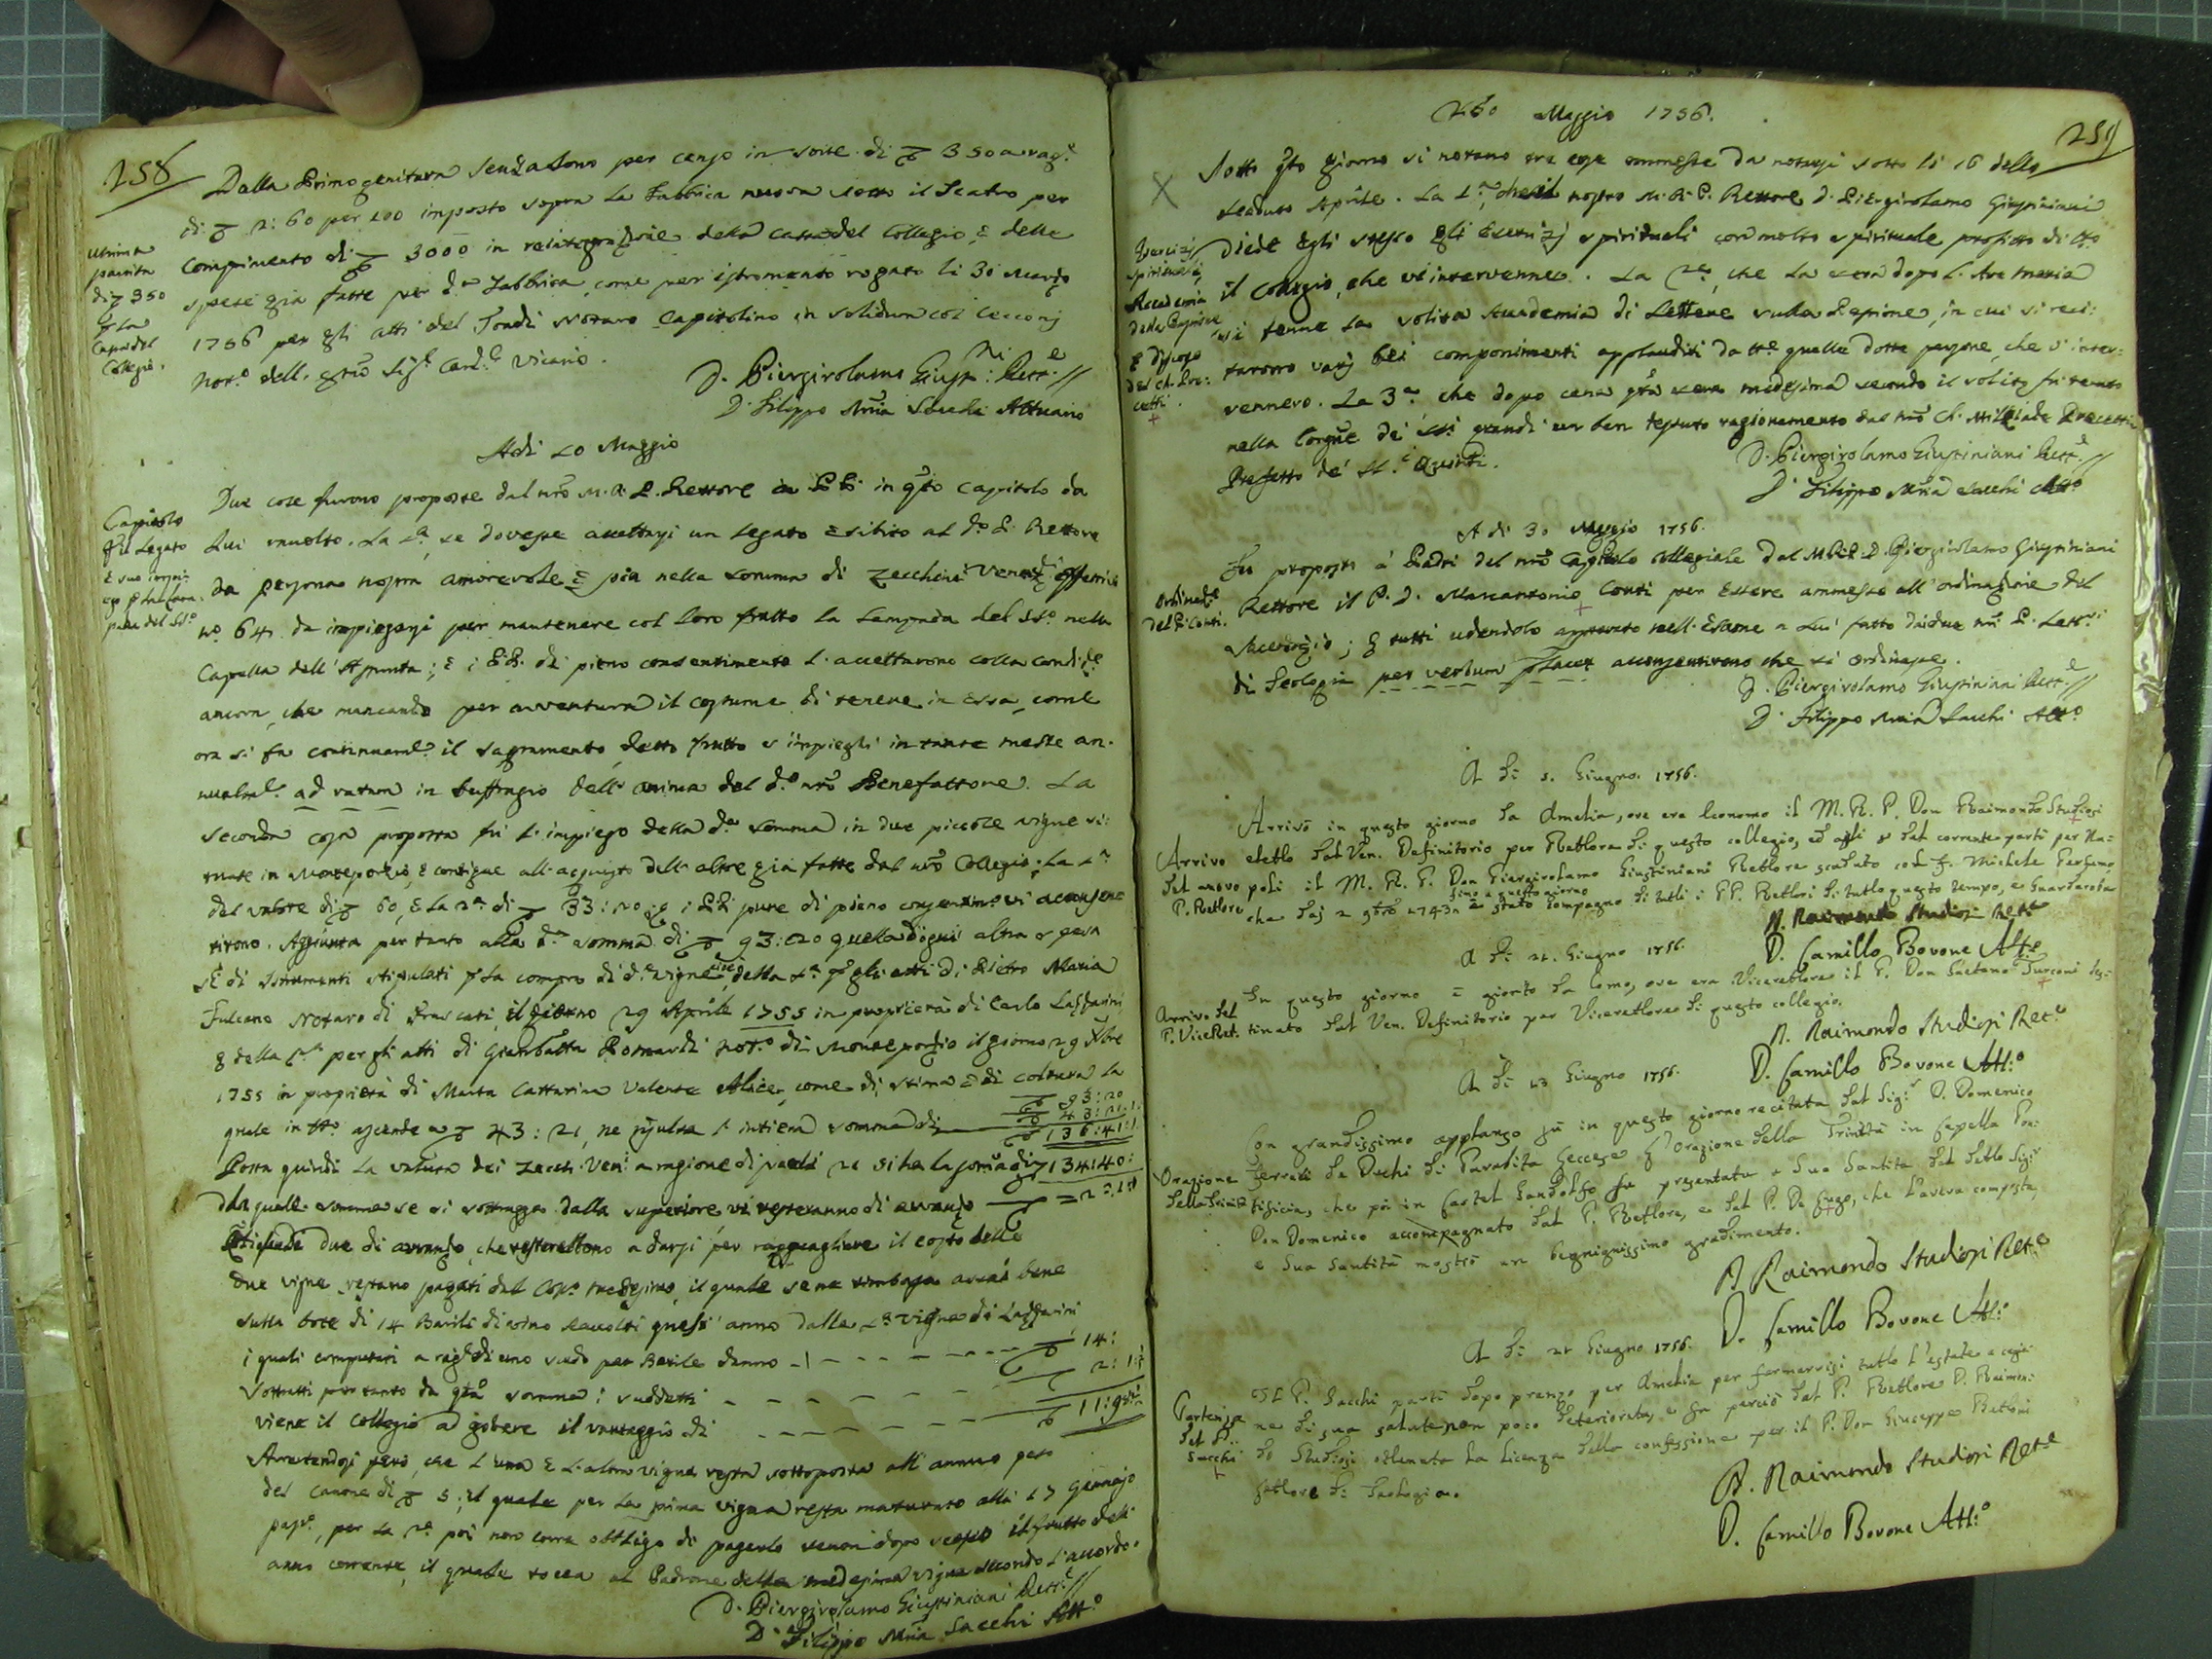 258
Dalla Primogenitura per censo in sorte di 350 a rag.e
di 2:60 per 100 imposto sopra la Fabbrica nuova sotto il Teatro per
compimento di 3000 in reintegrazione della cassa del Collegio, e delle
spese gia fatte per d.a Fabbrica, come per istromento rogato li 30 Marzo
1756 per gli atti del Notaro Capitolino in solidum col Cecconj
Not.o dell' Sig.r Card.l Vicario.
Ultima
partita
di 350
p la
Cassa del
Collegio.
D. Piergirolamo Giust.ni Rett.e
D. Filippo Mria Sacchi Attuario
Adi 10 Maggio
Due cose furono proposte dal nro M.R.P. Rettore a PP. in qsto Capitolo da
Lui . La 1.a, se dovesse accettarsi un legato esibito al d.o P. Rettore
da persona nostra amorevole e pia nella somma di zecchini
n.o 64 da impiegarsi per mantenere col loro frutto la lampada del SS.o nella
Capella dell' Assunta; e i PP. di pieno consentimento l' accettarono colla condiz.e
ancora, che mancando per avventura il costume di tenere in essa, come
ora si fa continuam.e il sagramento, detto frutto s' impieghi in tante messe an-
nualm.e ad ratum in suffragio dell' anima del d.o nro Benefattore. La
seconda cosa proposta fu l' impiego della d.a somma in due piccole vigne si-
tuate in Monteporzio, e contigue all' acquisto dell' altre gia fatte dal nro Collegio; La 1.a
del valore di 60, e la 2.a di 33:20; e i PP. pure di pieno consentim.o vi acconsen-
tirono. Aggiunta per tanto alla d.a somma di 93:20 quella d'ogni altra spesa
si di Istrumenti stipulati p la compra di d.e vigne, cioe della 1.a p gli atti di Pietro Maria
Fulcano Notaro di Frascati, il giorno 29 Aprile 1755 in proprietà di Carlo Lazzarini
e della 2.a per gli atti di Giambatta Not.o di Monteporzio il giorno 29 Xbre
1755 in proprietà di Marta Cattarina Valente , come di stima e di coltura la
quale in tto ascende a 43:21, ne risulta l' intiera somma di
93:20
43:21:1
136:41:1
Posta quindi la valuta dei Zecch. Ven.i a ragione di paoli 21 si ha la soma di 134:40:
Dla quale somma se si sottragga dalla superiore vi resteranno di avanzo = 2:1:1
due di avanzo, che resterebbono a darsi per ragguagliare il costo delle
due vigne, restano pagati dal Coll.o medesimo, il quale se ne rimborsa assai bene
sulla bote di 14 Barili di vino raccolti quest' anno dalla 1.a vigna di Lazzarini
i quali computati a rag.e di uno scudo per Barile danno 14:
Sottratti pero tanto da qta somma i suddetti 2:1:1
viene il Collegio a godere il vantaggio di 11:98:
Avvertendosi però, che l' una e l'altra vigna resta sottoposta all' annuo peso
del canone di 5; il quale per la prima vigna resta maturato alli 17 Gennajo
pass.o, per la 2.a poi non corre obbligo di pagarlo senon dopo scorso il frutto dell'
anno corrente, il quale tocca al Padrone della medesima vigna secondo l'accordo.
Capitolo
Pil Legato
e suo impi-
ego p la Lam-
pada del SS.o
D. Piergirolamo Giustiniani Rett.e
D. Filippo Mria Sacchi Att.o
259
Maggio 1756.
Sotto qsto giorno si notano tre cose ommesse da notarsi sotto li 16 dello
scaduto Aprile. La 1.a, che il nostro M.R.P. Rettore D. Piergirolamo Giustiniani
Diede Egli stesso gli Esercizj spirituali con molto spirituale profitto di tto
il Collegio, che v' intervenne. La 2.a, che la sera dopo l' Ave Maria
si tenne la solita Accademia di Lettere sulla Passione, in cui si reci-
tarono varj bei componimenti applauditi da tte quelle dotte persone, che v' inter-
vennero. La 3.a che dopo cena qta sera medesima secondo il solito fu tenuto
nella Congne dei grandi un ben tessuto ragionamento dal nro Ch. Milziade
Prefetto de' .
Esercizj
spirituali,
Accademia
della Passione
e Discorso
del Ch. Pre-
cetti.
D. Piergirolamo Giustiniani Rett.e
D. Filippo Mria Sacchi Att.o
A di 30 Maggio 1756.
Fu proposto a' Padri del nro Capitolo Collegiale dal M.R.P. D. Piergirolamo Giustiniani
Rettore il P. D. Marcantonio Conti per essere ammesso all' ordinazione del
Sacerdozio; e tutti udendolo approvato nell' Esame a Lui fatto dai due nri P. Lett.ri
di Teologia per verbum placet acconsentirono che si ordinasse.
Ordinaz.e
del P. Conti.
D. Piergirolamo Giustiniani Rett.e
D. Filippo Mria Sacchi Att.o
A di 5. Giugno. 1756.
Arrivò in questo giorno da Amelia, ove era Economo il M. R. P. Don Raimondo Studiosi
eletto dal Ven. Definitorio per Rettore di questo collegio, ed agli 8 del corrente partì per Na-
poli il M. R. P. Don Piergirolamo Giustiniani Rettore scaduto col F. Michele Pergamo
che daj 2 8bre 1743 sino a questo giorno è stato compagno di tutti i PP. Rettori di tutto questo tempo, e Guardaroba
Arrivo
del nuovo
P. Rettore
D. Raimondo Studiosi Ret.e
D. Camillo Bovone Att.o
A di 21. Giugno 1756.
In questo giorno è giunto da Como, ove era Vicerettore il P. Don Gaetano Turconi des-
tinato dal Ven. Definitorio per Vicerettore di questo collegio.
Arrivo del
P. ViceRet.
D. Raimondo Studiosi Ret.e
D. Camillo Bovone Att.o
A di 13 Giugno 1756.
Con grandissimo applauso fù in questo giorno recitata dal Sig.r D. Domenico
de Duchi di l'Orazione della Trinità in Capella Pon-
tificia, che poi in Castel Gandolfo fu presentata a Sua Santità dal detto Sig.r
Don Domenico accompagnato dal P. Rettore, e dal P. De Lugo, che l'aveva composta,
e Sua Santità mostrò un benignissimo gradimento.
Orazione
della Trinità
D. Raimondo Studiosi Ret.e
D. Camillo Bovone Att.o
A di 21 Giugno 1756.
Il P. Sacchi partì dopo pranzo per Amelia per fermarvisi tutto l'estate a cagio-
ne di sua salute non poco deteriorata, e fu perciò dal P. Rettore D. Raimon-
do Studiosi ottenuta la licenza delle confessione per il P. Don Giuseppe
Lettore di Teologia.
Partenza
del P.
Sacchi
D. Raimondo Studiosi Ret.e
D. Camillo Bovone Att.o